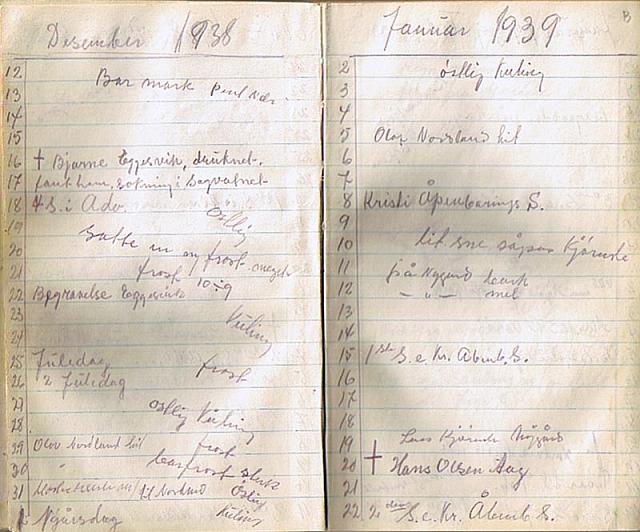 Desember 1938
12 Bar mark
13
14
15
16 † Bjarne Eggesvik, druknet.
17 fant ham, sokning i Sagvatnet
18 4 S. i Adv. østlig
19
20 Satte in
21 frost 10÷9
22 Begravelse Eggesvik
23 Kuling
24
25 Juledag frost
26 2 Juledag
27 østlig Kuling
28
29 Olav Nordland hit frost
30 barfrost sterk
31 til Nordland østlig
1 Nyårsdag Kuling
Januar 1939
2 østlig Kuling
3
4
5 Olav Nordland hit
6
7
8 Kristi Åpenbarings S.
9
10 lit sne såpas Kjørende
11 från Nygård bark
12 — " — mel
13
14
15 1ste S. e. Kr. Åbenb. S.
16
17
18
19 Lass Kjørende
20 † Hans Olsen Aag
21
22 2 den S. e. Kr. Åbenb. S.